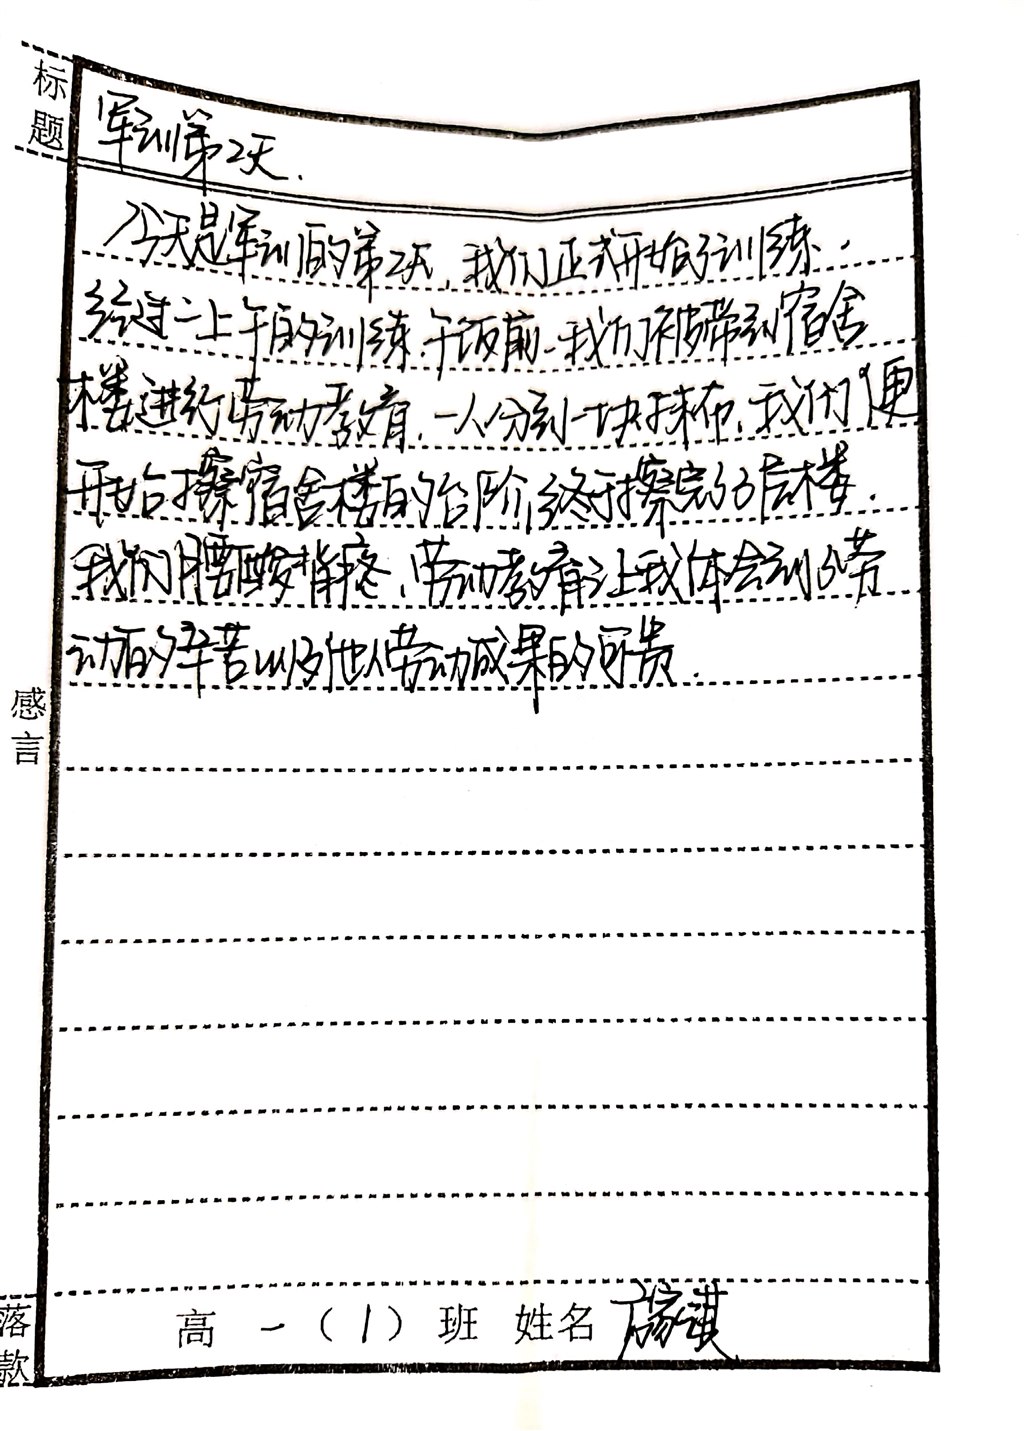 标题
军训第2天.
今天是军训的第2天,我们正式开始了训练.
经过一上午的训练,午饭前,我们被带到宿舍
楼进行劳动教育,一人分到一块抹布,我们便
开始擦宿舍楼的台阶,终于擦完了6层楼.
我们腰酸背疼,劳动教育让我体会到了劳
动的辛苦以及他人劳动成果的可贵.
感言
落款
高一(1)班 姓名